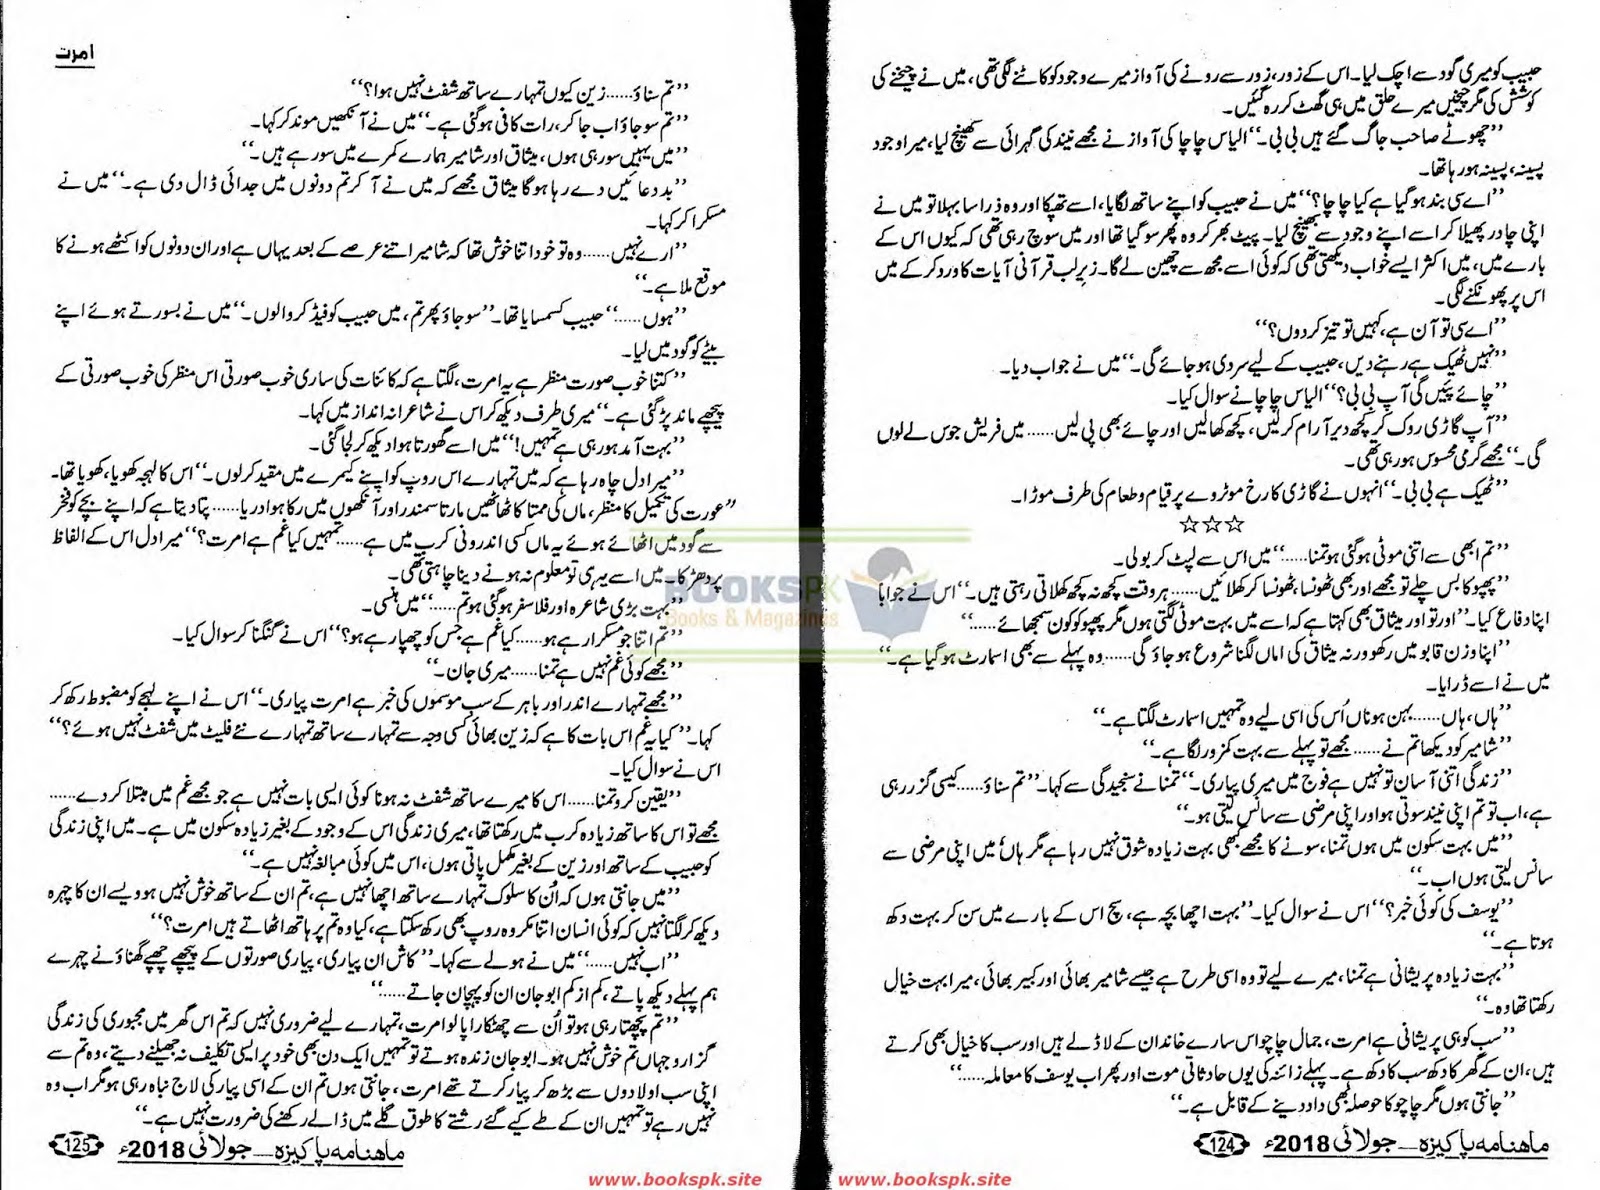 حبیب کو میری گود سے اچک لیا۔ اس کے زور، زور سے رونے کی آواز میرے وجود کو کاٹنے لگی تھی، میں نے چیخنے کی
کوشش کی مگر چیخیں میرے حلق میں ہی گھٹ کر رہ گئیں۔
”چھوٹے صاحب جاگ گئے ہیں بی بی۔“ الیاس چاچا کی آواز نے مجھے نیند کی گہرائی سے کھینچ لیا، میرا وجود
پسینہ، پسینہ ہو رہا تھا۔
”اے سی بند ہو گیا ہے کیا چاچا؟“ میں نے حبیب کو اپنے ساتھ لگایا، اسے تھپکا اور وہ ذرا سا بہلا تو میں نے
اپنی چادر پھیلا کر اسے اپنے وجود سے بھینچ لیا۔ پیٹ بھر کر وہ پھر سو گیا تھا اور میں سوچ رہی تھی کہ کیوں اس کے
بارے میں، میں اکثر ایسے خواب دیکھتی تھی کہ کوئی اسے مجھ سے چھین لے گا۔ زیرِ لب قرآنی آیات کا ورد کر کے میں
اس پر پھونکنے لگی۔
”اے سی تو آن ہے، کہیں تو تیز کر دوں؟“
”نہیں ٹھیک ہے رہنے دیں، حبیب کے لیے سردی ہو جائے گی۔“ میں نے جواب دیا۔
”چائے پئیں گی آپ بی بی؟“ الیاس چاچا نے سوال کیا۔
”آپ گاڑی روک کر کچھ دیر آرام کر لیں، کچھ کھا لیں اور چائے بھی پی لیں...... میں فریش جوس لے لوں
گی۔“ مجھے گرمی محسوس ہو رہی تھی۔
”ٹھیک ہے بی بی۔“ انہوں نے گاڑی کا رخ موٹر وے پر قیام و طعام کی طرف موڑا۔
☆☆☆
”تم ابھی سے اتنی موٹی ہو گئی ہو تمنا......“ میں اس سے لپٹ کر بولی۔
”پھپو کا بس چلے تو مجھے اور بھی ٹھونسا، ٹھونسا کر کھلائیں...... ہر وقت کچھ نہ کچھ کھلاتی رہتی ہیں۔“ اس نے جواباً
اپنا دفاع کیا۔ ”اور تو اور میثاق بھی کہتا ہے کہ اسے میں بہت موٹی لگتی ہوں مگر پھپو کو کون سمجھائے......“
”اپنا وزن قابو میں رکھو ورنہ میثاق کی اماں لگنا شروع ہو جاؤ گی...... وہ پہلے سے بھی اسمارٹ ہو گیا ہے۔“
میں نے اسے ڈرایا۔
”ہاں، ہاں...... بہن ہو ناں اُس کی اسی لیے وہ تمہیں اسمارٹ لگتا ہے۔“
”شامیر کو دیکھا تم نے...... مجھے تو پہلے سے بہت کمزور لگا ہے۔“
”زندگی اتنی آسان تو نہیں ہے فوج میں میری پیاری۔“ تمنا نے سنجیدگی سے کہا۔ ”تم سناؤ...... کیسی گزر رہی
ہے، اب تو تم اپنی نیند سوتی ہو اور اپنی مرضی سے سانس لیتی ہو۔“
”میں بہت سکون میں ہوں تمنا، سونے کا مجھے کبھی بہت زیادہ شوق نہیں رہا ہے مگر ہاں میں اپنی مرضی سے
سانس لیتی ہوں اب۔“
”یوسف کی کوئی خبر؟“ اس نے سوال کیا۔ ”بہت اچھا بچہ ہے، سچ اس کے بارے میں سن کر بہت دکھ
ہوتا ہے۔“
”بہت زیادہ پریشانی ہے تمنا، میرے لیے تو وہ اسی طرح ہے جیسے شامیر بھائی اور کبیر بھائی، میرا بہت خیال
رکھتا تھا وہ۔“
”سب کو ہی پریشانی ہے امرت، جمال چاچو اس سارے خاندان کے لاڈلے ہیں اور سب کا خیال بھی کرتے
ہیں، ان کے گھر کا دکھ سب کا دکھ ہے۔ پہلے زائنہ کی یوں حادثاتی موت اور پھر اب یوسف کا معاملہ......“
”جانتی ہوں مگر چاچو کا حوصلہ بھی داد دینے کے قابل ہے۔“
ماهنامه پاکیزه۔۔۔ جولائی 2018ء
124
امرت
”تم سناؤ...... زین کیوں تمہارے ساتھ شفٹ نہیں ہوا؟“
”تم سو جاؤ اب جا کر، رات کافی ہو گئی ہے۔“ میں نے آنکھیں موند کر کہا۔
”میں یہیں سو رہی ہوں، میثاق اور شامیر ہمارے کمرے میں سو رہے ہیں۔“
”بددعائیں دے رہا ہو گا میثاق مجھے کہ میں نے آ کر تم دونوں میں جدائی ڈال دی ہے۔“ میں نے
مسکرا کر کہا۔
”ارے نہیں...... وہ تو خود اتنا خوش تھا کہ شامیر اتنے عرصے کے بعد یہاں ہے اور ان دونوں کو اکٹھے ہونے کا
موقع ملا ہے۔“
”ہوں......“ حبیب کسمسایا تھا۔ ”سو جاؤ پھر تم، میں حبیب کو فیڈ کروا لوں۔“ میں نے بسورتے ہوئے اپنے
بیٹے کو گود میں لیا۔
”کتنا خوب صورت منظر ہے یہ امرت، لگتا ہے کہ کائنات کی ساری خوب صورتی اس منظر کی خوب صورتی کے
پیچھے ماند پڑ گئی ہے۔“ میری طرف دیکھ کر اس نے شاعرانہ انداز میں کہا۔
”بہت آمد ہو رہی ہے تمہیں!“ میں اسے گھورتا ہوا دیکھ کر لجا گئی۔
”میرا دل چاہ رہا ہے کہ میں تمہارے اس روپ کو اپنے کیمرے میں مقید کر لوں۔“ اس کا لہجہ کھویا، کھویا تھا۔
”عورت کی تکمیل کا منظر، ماں کی ممتا کا ٹھاٹھیں مارتا سمندر اور آنکھوں میں رکا ہوا دریا...... پتا دیتا ہے کہ اپنے بچے کو فخر
سے گود میں اٹھائے ہوئے یہ ماں کسی اندرونی کرب میں ہے...... تمہیں کیا غم ہے امرت؟“ میرا دل اس کے الفاظ
پر دھڑکا۔ میں اسے یہ ہی تو معلوم نہ ہونے دینا چاہتی تھی۔
”بہت بڑی شاعرہ اور فلاسفر ہو گئی ہو تم......“ میں ہنسی۔
”تم اتنا جو مسکرا رہے ہو...... کیا غم ہے جس کو چھپا رہے ہو؟“ اس نے گنگنا کر سوال کیا۔
”مجھے کوئی غم نہیں ہے تمنا...... میری جان۔“
”مجھے تمہارے اندر اور باہر کے سب موسموں کی خبر ہے امرت پیاری۔“ اس نے اپنے لہجے کو مضبوط رکھ کر
کہا۔ ”کیا یہ غم اس بات کا ہے کہ زین بھائی کسی وجہ سے تمہارے ساتھ تمہارے نئے فلیٹ میں شفٹ نہیں ہوئے؟“
اس نے سوال کیا۔
”یقین کرو تمنا...... اس کا میرے ساتھ شفٹ نہ ہونا کوئی ایسی بات نہیں ہے جو مجھے غم میں مبتلا کر دے......
مجھے تو اس کا ساتھ زیادہ کرب میں رکھتا تھا، میری زندگی اس کے وجود کے بغیر زیادہ سکون میں ہے۔ میں اپنی زندگی
کو حبیب کے ساتھ اور زین کے بغیر مکمل پاتی ہوں، اس میں کوئی مبالغہ نہیں ہے۔“
”میں جانتی ہوں کہ اُن کا سلوک تمہارے ساتھ اچھا نہیں ہے، تم ان کے ساتھ خوش نہیں ہو ویسے ان کا چہرہ
دیکھ کر لگتا نہیں کہ کوئی انسان اتنا مکروہ روپ بھی رکھ سکتا ہے، کیا وہ تم پر ہاتھ اٹھاتے ہیں امرت؟“
”اب نہیں......“ میں نے ہولے سے کہا۔ ”کاش ان پیاری، پیاری صورتوں کے پیچھے چھپے گھناؤنے چہرے
ہم پہلے دیکھ پاتے، کم از کم ابو جان ان کو پہچان جاتے......“
”تم پچھتا رہی ہو تو اُن سے چھٹکارا پا لو امرت، تمہارے لیے ضروری نہیں کہ تم اس گھر میں مجبوری کی زندگی
گزارو جہاں تم خوش نہیں ہو۔ ابو جان زندہ ہوتے تو تمہیں ایک دن بھی خود پر ایسی تکلیف نہ جھیلنے دیتے، وہ تم سے
اپنی سب اولادوں سے بڑھ کر پیار کرتے تھے امرت، جانتی ہوں تم ان کے اسی پیار کی لاج نباہ رہی ہو مگر اب وہ
نہیں رہے تو تمہیں ان کے طے کیے گئے رشتے کا طوق گلے میں ڈالے رکھنے کی ضرورت نہیں ہے۔“
ماهنامه پاکیزه۔۔۔ جولائی 2018ء
125
BOOKSPK
Books & Magazines
www.bookspk.site
www.bookspk.site